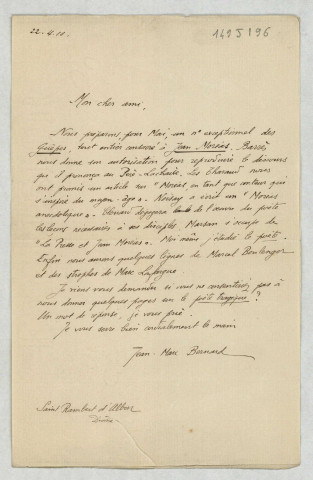 22.4.11.
1495196
Mon cher ami,
Nous préparons pour Mai, un n° exceptionnel des
Guêpes, tout entier consacré à Jean Moréas. Barrès
nous donne son autorisation pour reproduire le discours
qu'il prononça au Père-Lachaise. Les Tharaud nous
ont promis un article sur "Moréas, en tant que conteur qui
s'inspire du moyen-âge". écrit un "Moréas
anecdotique". dégagera de l'œuvre du poète
les leçons à ses disciples. Marsan s'occupe de
"La Presse et Jean Moréas". Moi-même j'étudie le poète.
Enfin nous aurons quelques lignes de Marcel Boulenger
et des strophes de Marc Lafargue.
Je viens vous demander si vous ne consentiriez pas à
nous donner quelques pages sur le poète tragique?
Un mot de réponse, je vous prie.
Je vous serre bien cordialement la main
Jean-Marc Bernard
Saint Rambert d'Albon
Drôme